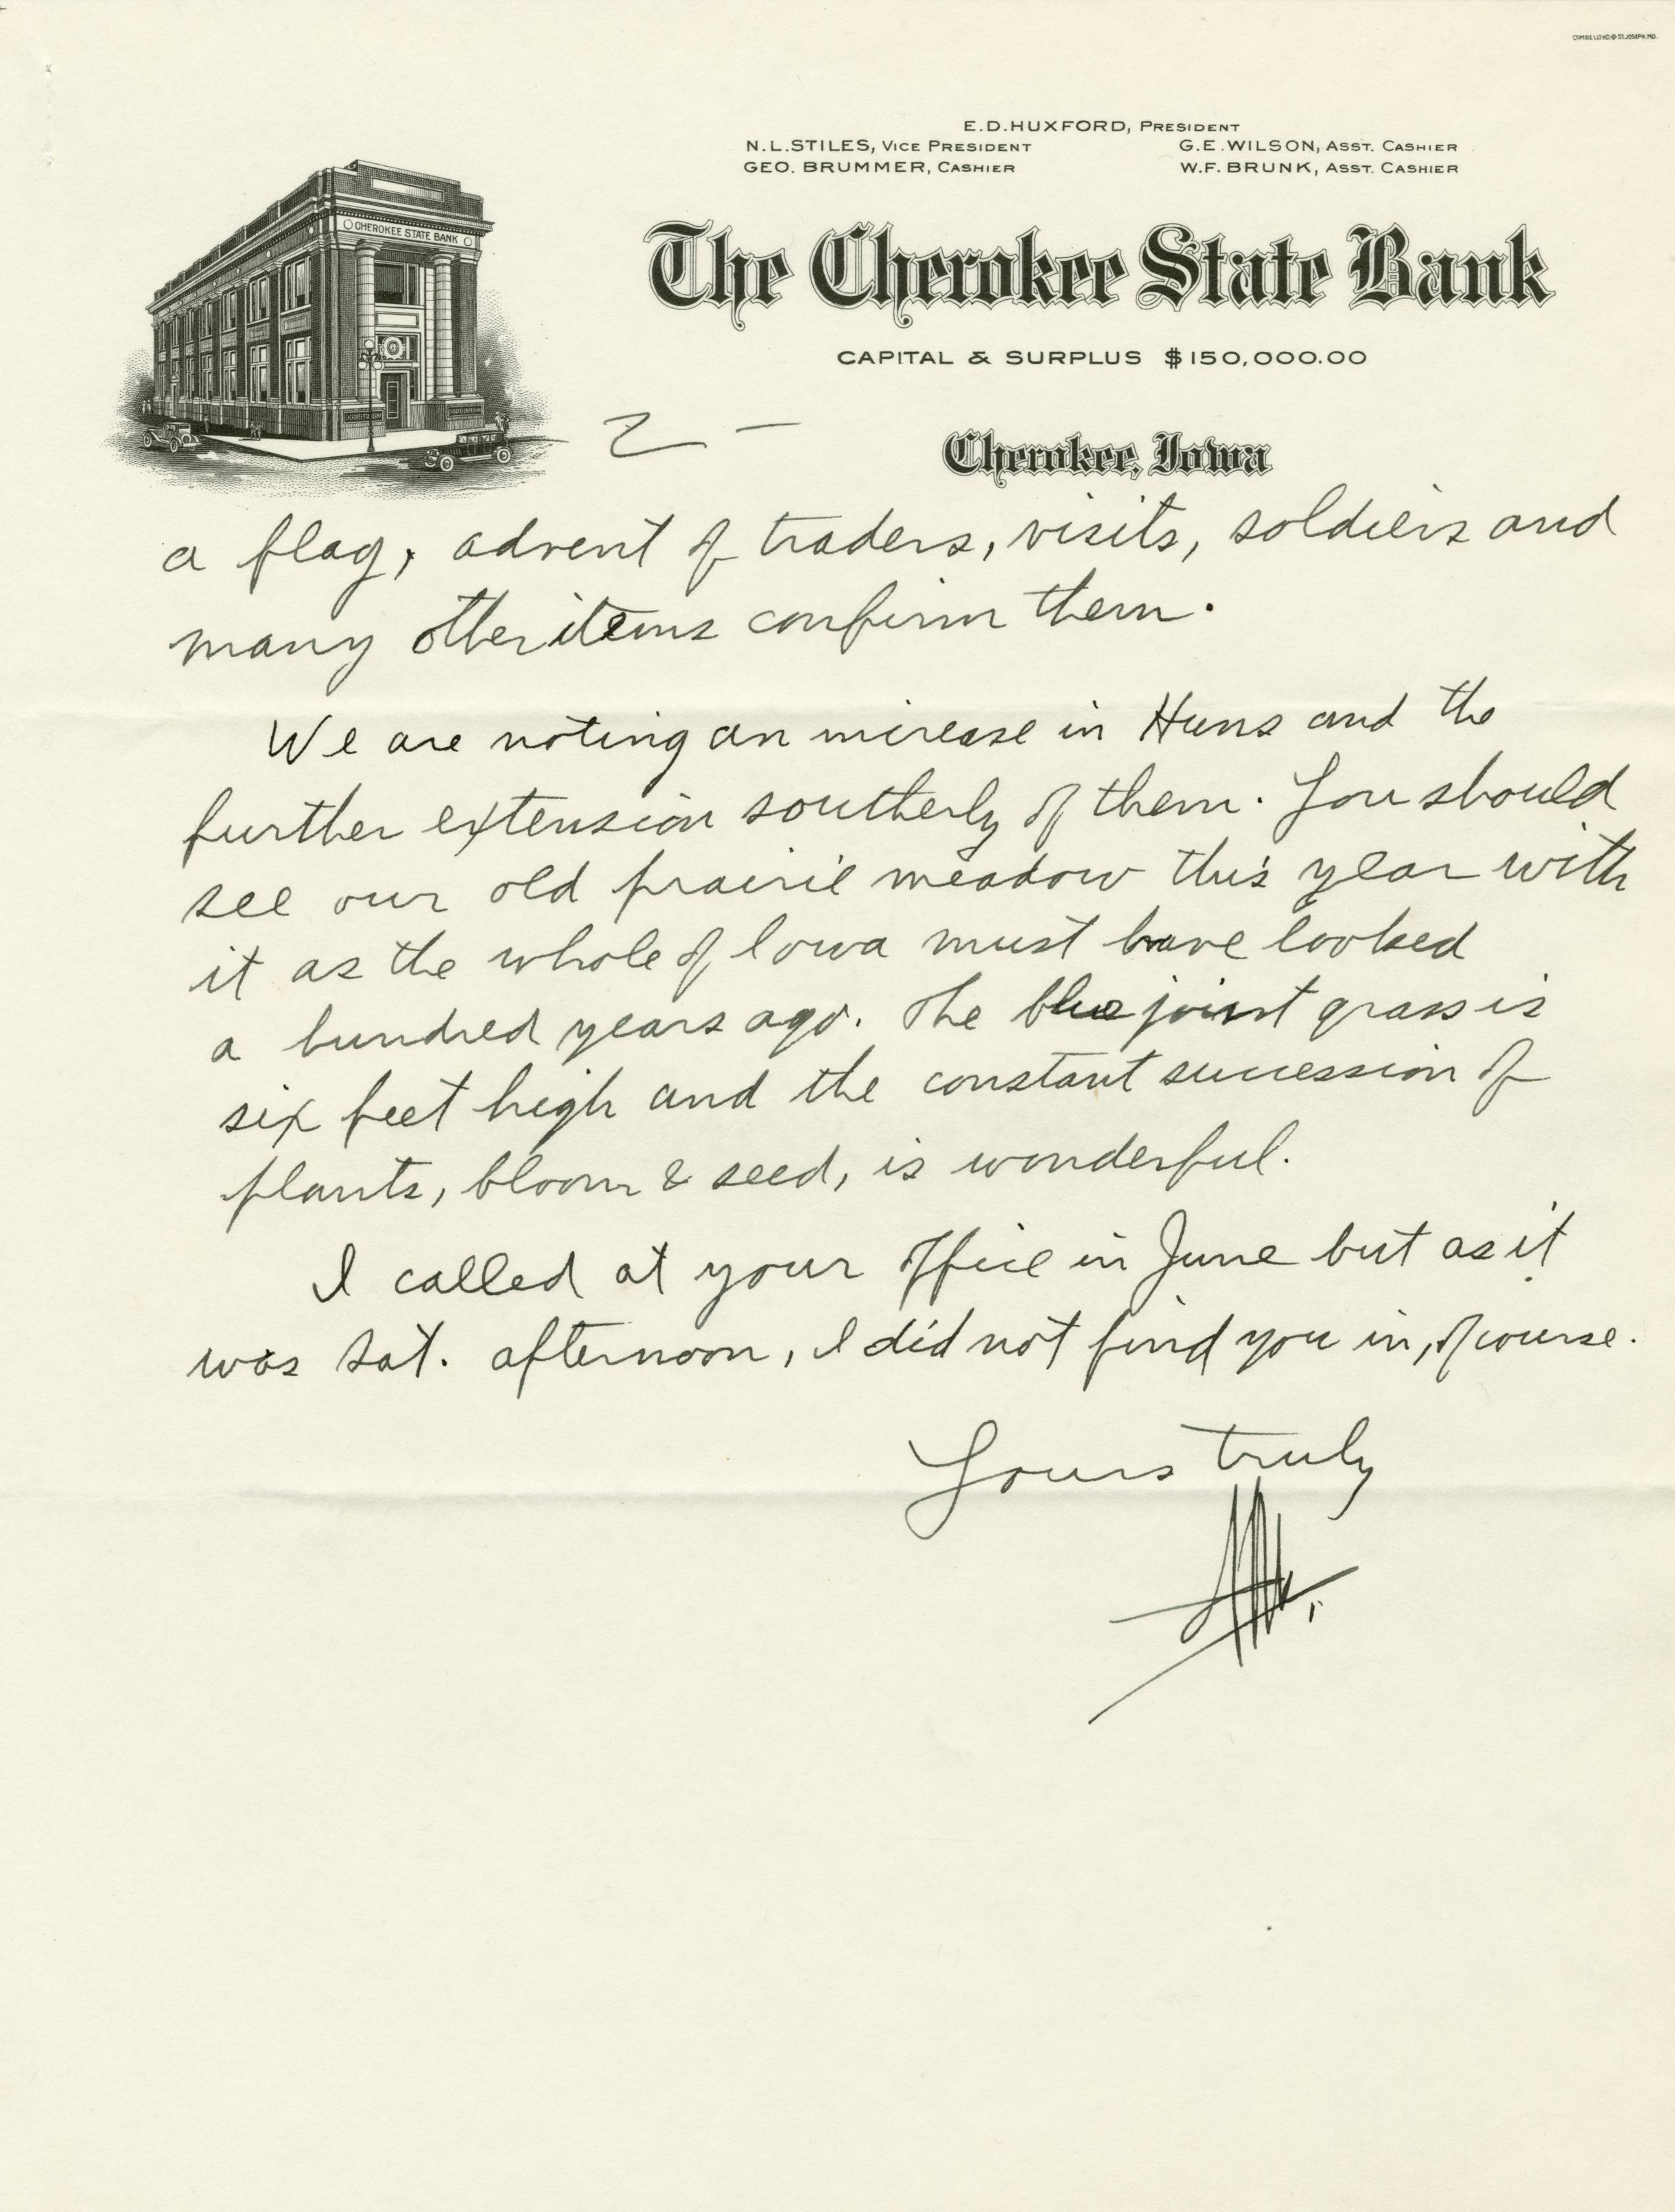 COMBE LITHO. ST. JOSEPH, MO.
E.D.HUXFORD, PRESIDENT
N.L.STILES, VICE PRESIDENT G.E.WILSON, ASST. CASHIER
GEO. BRUMMER, CASHIER W.F. BRUNK, ASST. CASHIER
CHEROKEE STATE BANK
The Cherokee State Bank
CAPITAL & SURPLUS $150,000.00
2 —
Cherokee, Iowa
a flag, advent of traders, visits, soldiers and
many other items confirm them.
We are noting an increase in Huns and the
further extension southerly of them. You should
see our old prairie meadow this year with
it as the whole of Iowa must have looked
a hundred years ago. The blue joint grass is
six feet high and the constant succession of
plants, bloom & seed, is wonderful.
I called at your office in June but as it
was Sat. afternoon, I did not find you in, of course.
Yours truly